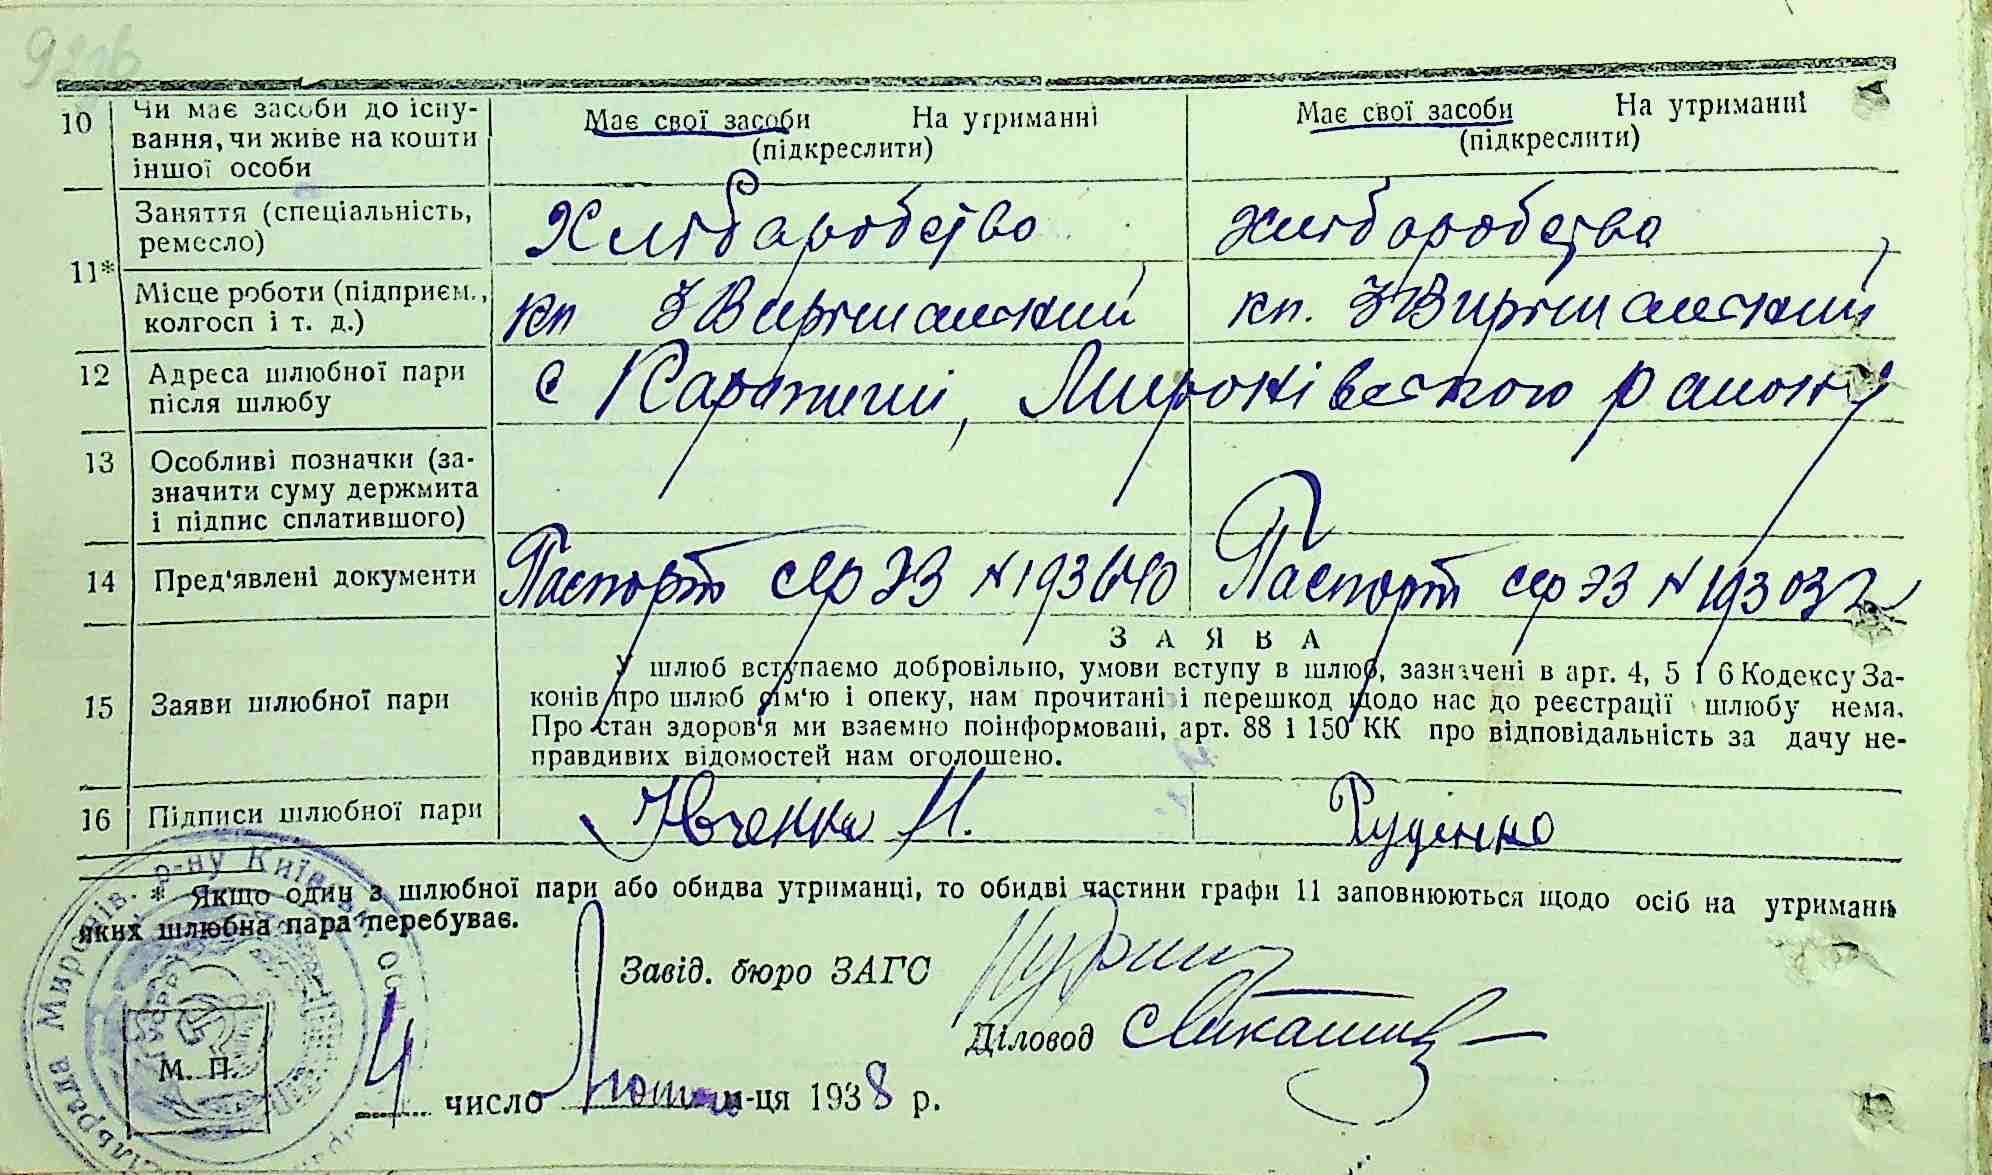 10 Чи має засоби до існу-
вання, чи живе на кошти
іншої особи
Має свої засоби На утриманні
(підкреслити)
Має свої засоби На утриманні
(підкреслити)
11* Заняття (спеціальність,
ремесло)
Хлібаробство
хлібаробства
Місце роботи (підприєм.,
колгосп і т. д.)
кп
кп.
12 Адреса шлюбної пари
після шлюбу
с Карапиші, Миронівського району
13 Особливі позначки (за-
значити суму держмита
і підпис сплатившого)
14 Пред'явлені документи
Паспорт сер ЭЗ N 193640
Паспорт сер ЭЗ N 193032
15 Заяви шлюбної пари
ЗАЯВА
У шлюб вступаємо добровільно, умови вступу в шлюб, зазначені в арт. 4, 5 і 6 Кодексу За-
конів про шлюб сім'ю і опеку, нам прочитані і перешкод щодо нас до реєстрації шлюбу нема.
Про стан здоров'я ми взаємно поінформовані, арт. 88 і 150 КК про відповідальність за дачу не-
правдивих відомостей нам оголошено.
16 Підписи шлюбної пари
Івченко И.
Руденко
* Якщо один з шлюбної пари або обидва утриманці, то обидві частини графи 11 заповнюються щодо осіб на утриманні
яких шлюбна пара перебуває.
Завід. бюро ЗАГС
Діловод
М. П.
4 число Лютого м-ця 1938 р.
Миронів. р-ну Київськ.